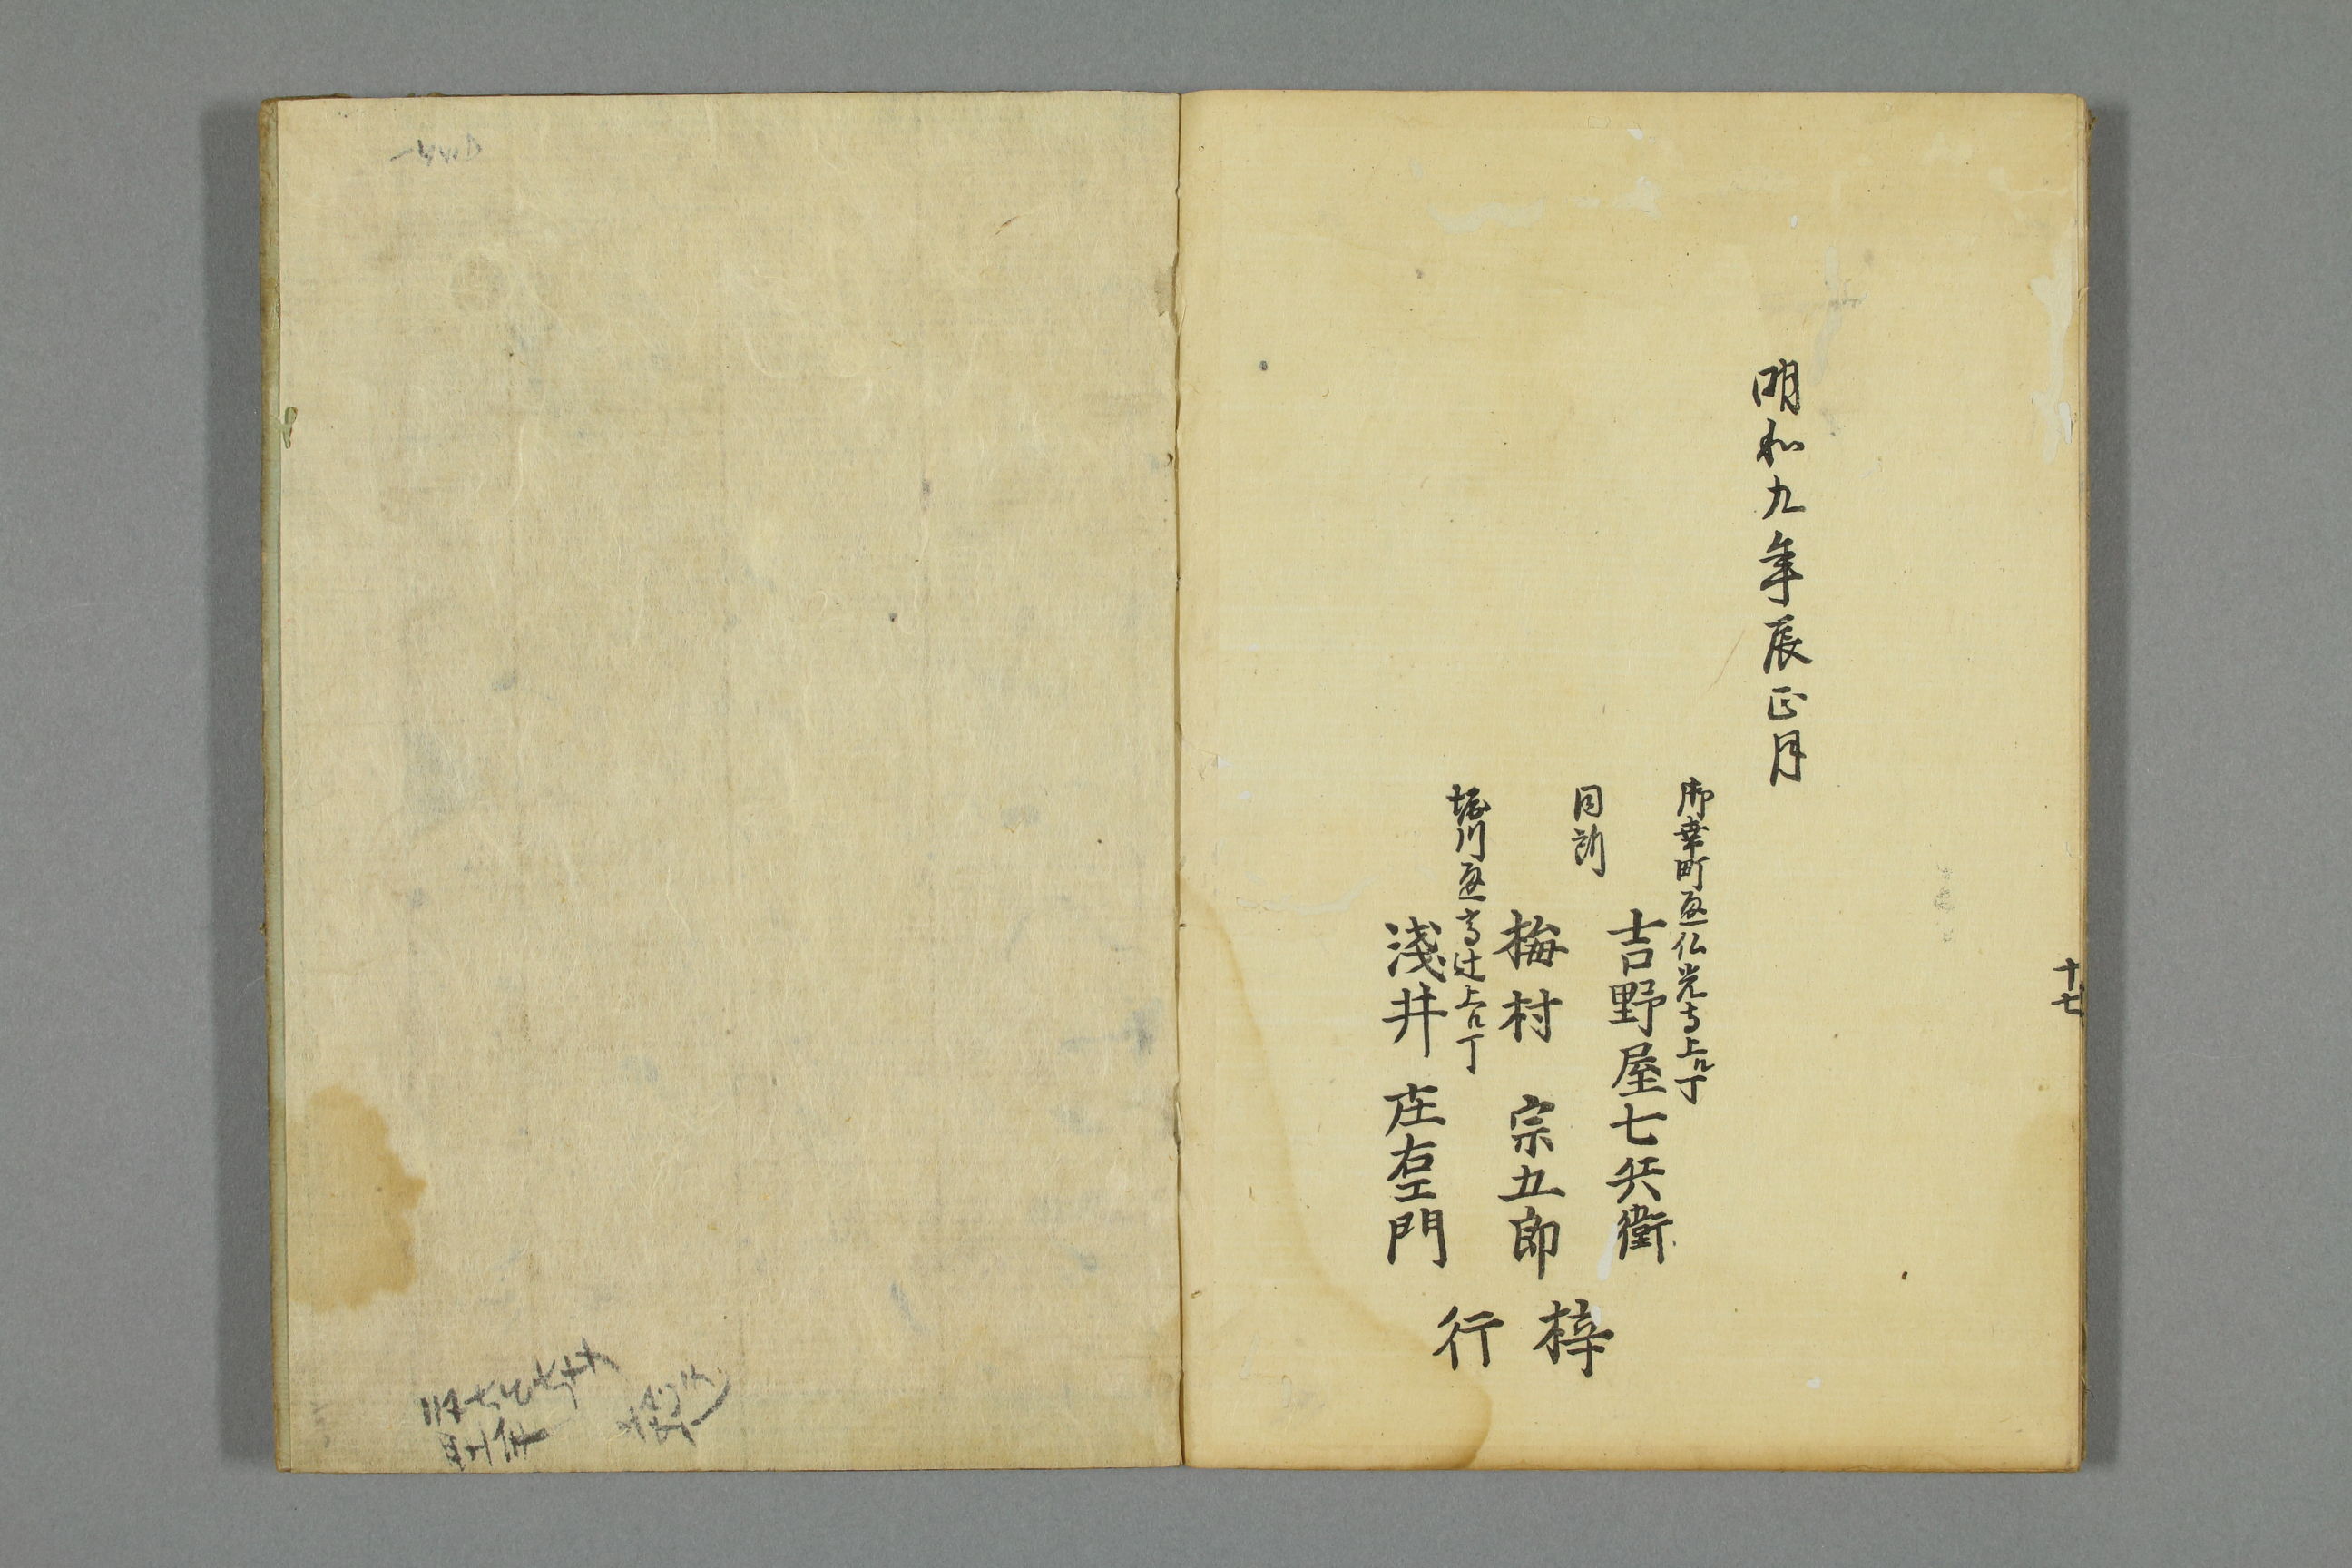 明和九年辰正月
御幸町通仏光寺上ル丁
吉野屋七兵衛
同所
梅村 宗五郎
堀川通高辻上ル丁
淺井 庄右エ門
梓
行
十七